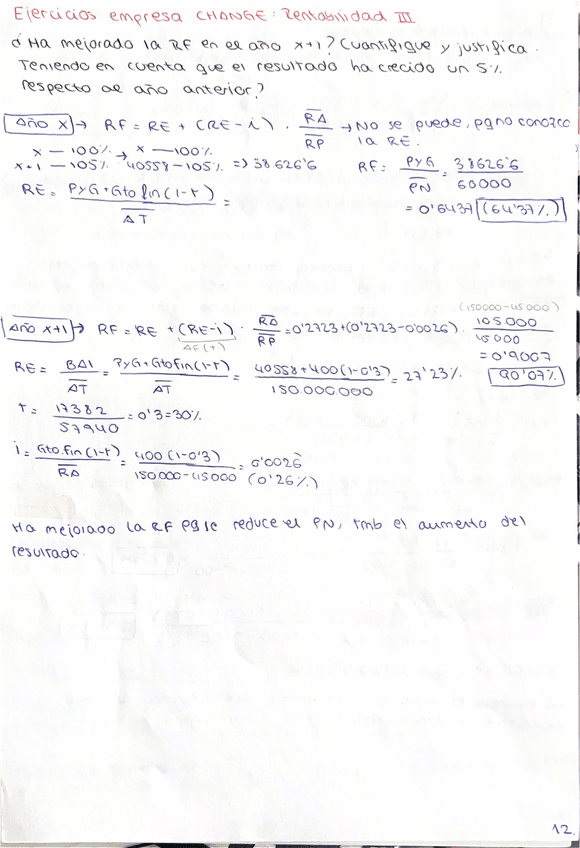 Ejercicios empresa CHANGE: Rentabilidad III
¿Ha mejorado la RF en el año x+1? Cuantifique y justifica.
Teniendo en cuenta que el resultado ha crecido un 5%
respecto al año anterior?
Año x → RF = RE + (RE-i) · RA/RP → No se puede, pq no conozco
la RE.
x — 100% → x — 100%
x+1 — 105% 40558 — 105% => 38626'6
RF = PyG/PN = 38626'6/60000
= 0'6437 (64'37%)
RE = PyG + Gto fin (1-t)/AT =
(150000-45000)
Año x+1 → RF = RE + (RE-i) · RA/RP = 0'2723 + (0'2723-0'0026) · 105000/45000
AF (+)
= 0'9007
90'07%
RE = BAI/AT = PyG + Gto fin (1-t)/AT = 40558 + 400 (1-0'3)/150.000.000 = 27'23%
t = 17382/57940 = 0'3 = 30%
i = Gto. fin (1-t)/RA = 400 (1-0'3)/150000-45000 = 0'0026 (0'26%)
Ha mejorado la RF pq se reduce el PN, tmb el aumento del
resultado.
12.